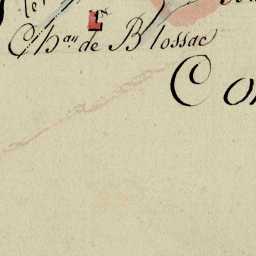 Chau de Blossac
Co